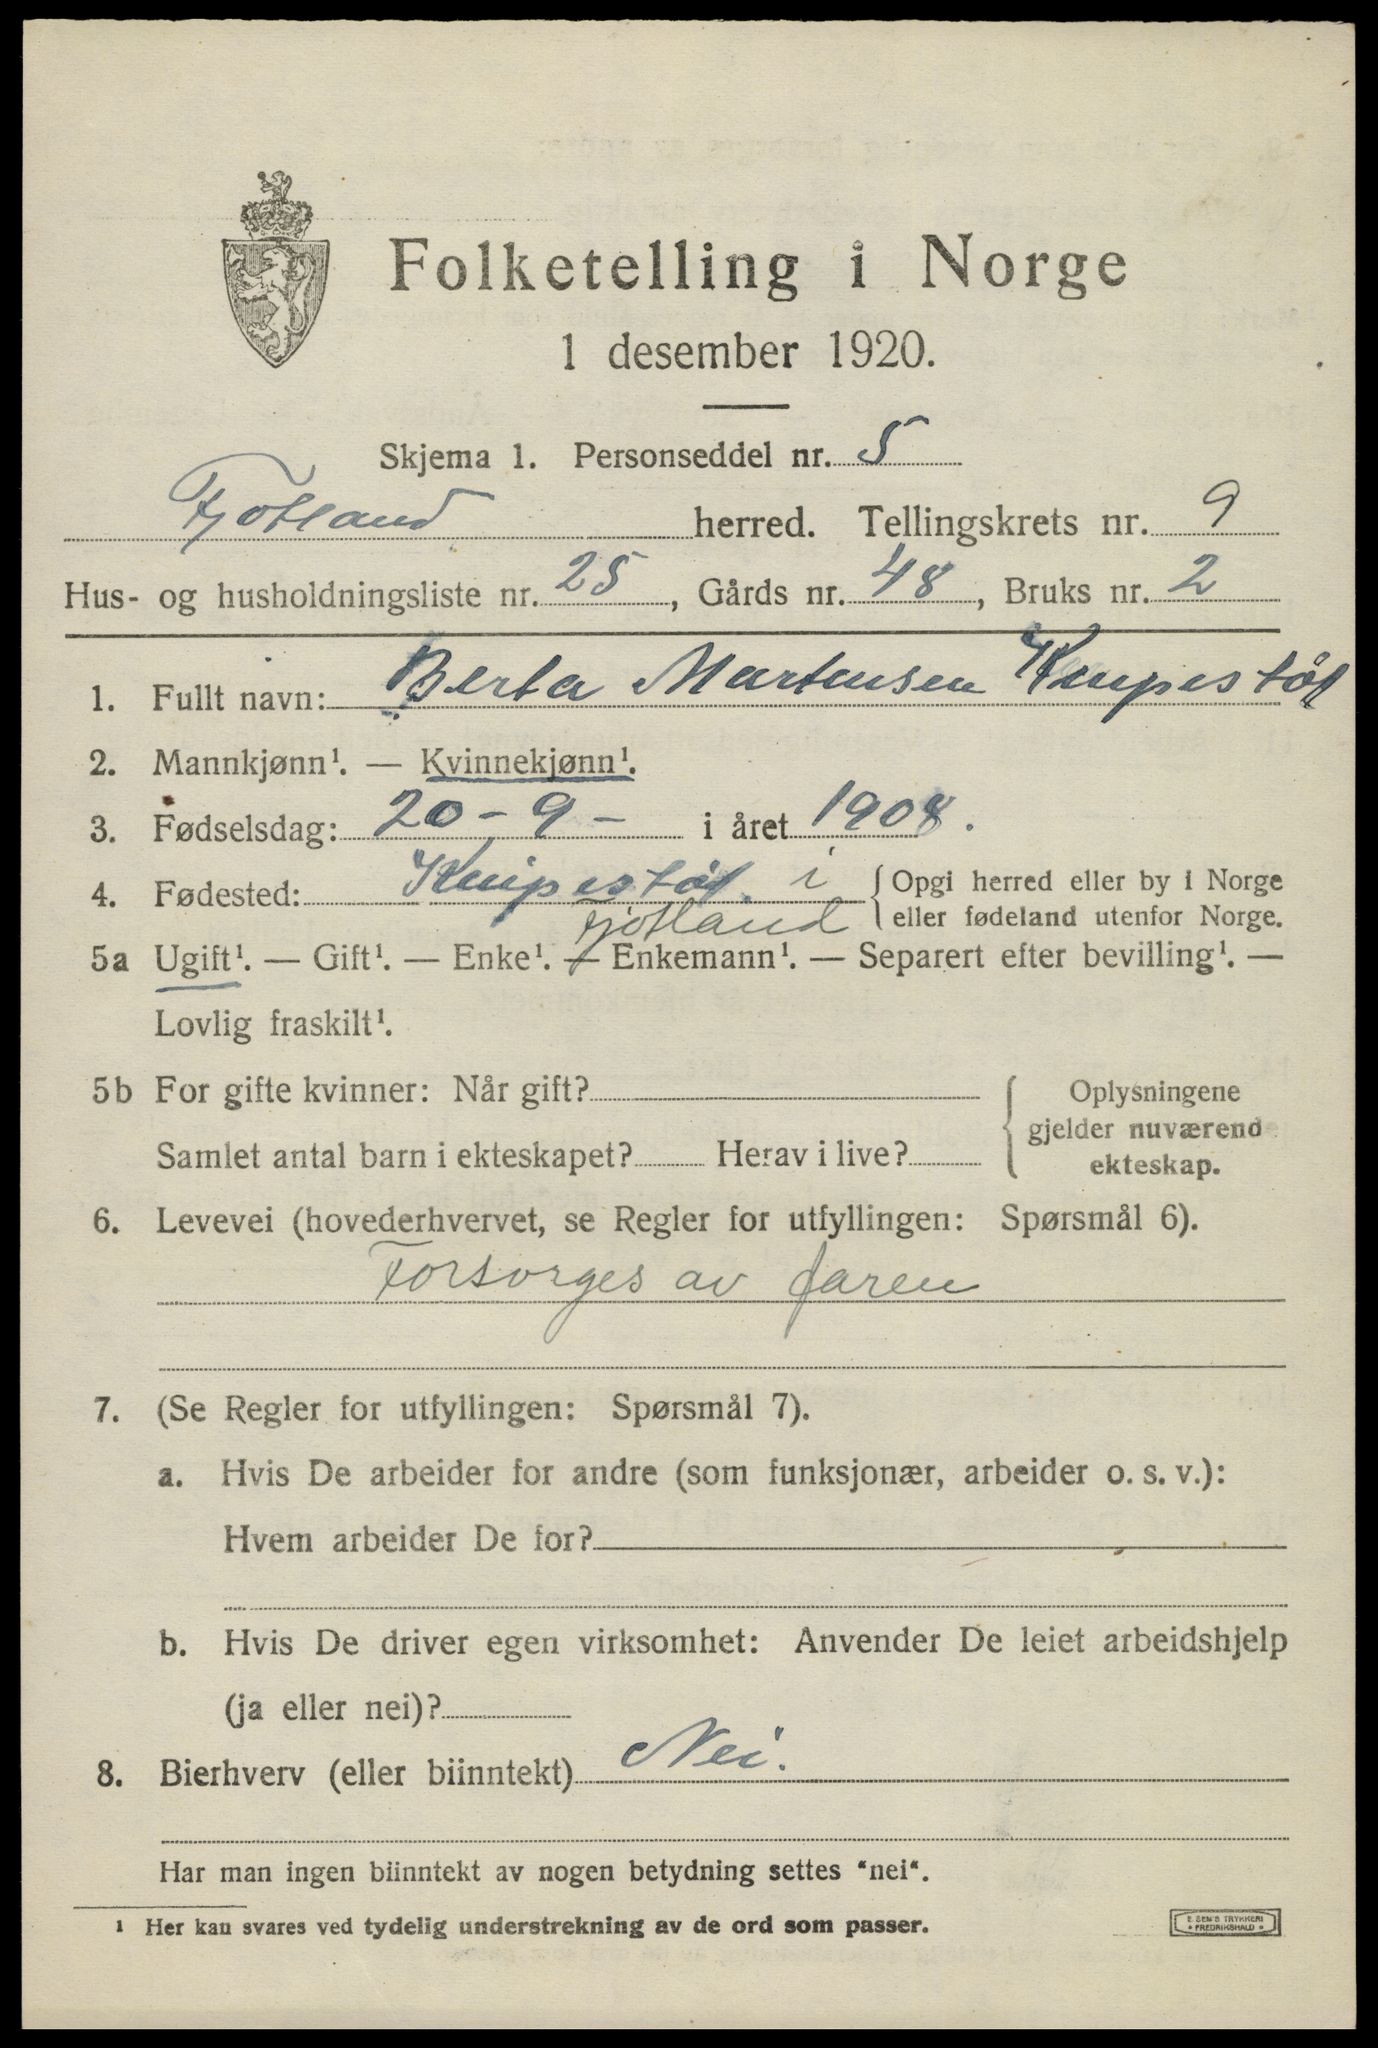 Folketelling i Norge
1 desember 1920.
Skjema 1. Personseddel nr. 5
Fjotland herred. Tellingskrets nr. 9
Hus- og husholdningsliste nr. 25, Gårds nr. 48, Bruks nr. 2
1. Fullt navn: Berta Martensen Knipestøl
2. Mannkjønn¹. — Kvinnekjønn¹.
3. Fødselsdag: 20 - 9 - i året 1908.
4. Fødested: Knipestøl i { Opgi herred eller by i Norge
Fjotland eller fødeland utenfor Norge.
5a Ugift¹. — Gift¹. — Enke¹. — Enkemann¹. — Separert efter bevilling¹. —
Lovlig fraskilt¹.
5b For gifte kvinner: Når gift? { Oplysningene
gjelder nuværende
Samlet antal barn i ekteskapet? Herav i live? ekteskap.
6. Levevei (hovederhvervet, se Regler for utfyllingen: Spørsmål 6).
Forsørges av faren
7. (Se Regler for utfyllingen: Spørsmål 7).
a. Hvis De arbeider for andre (som funksjonær, arbeider o. s. v.):
Hvem arbeider De for?
b. Hvis De driver egen virksomhet: Anvender De leiet arbeidshjelp
(ja eller nei)?
8. Bierhverv (eller biinntekt) Nei.
Har man ingen biinntekt av nogen betydning settes "nei".
¹ Her kan svares ved tydelig understrekning av de ord som passer.
E. SEM'S TRYKKERI
FREDRIKSHALD